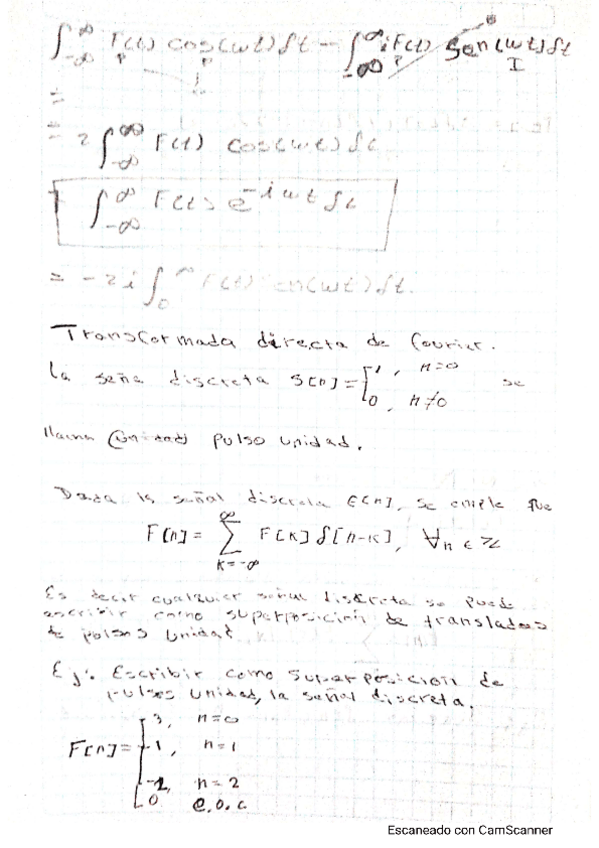 ∫_{-∞}^{∞} F(t) cos(ωt) dt - ∫_{-∞}^{∞} i F(t) Sen(ωt) dt
P P P I
=
= 2 ∫_{-∞}^{∞} F(t) cos(ωt) dt
∫_{-∞}^{∞} F(t) e^{-iωt} dt
= -2i ∫_{0}^{∞} F(t) en(ωt) dt.
Transformada directa de Fourier.
la seña discreta δ[n] = { 1, n=0 se
0, n≠0
llama (unidad) pulso unidad.
Dada la señal discreta F[n], se cmple que
F[n] = ∑_{k=-∞}^{∞} F[k] δ[n-k], ∀n ∈ ℤ
Es decir cualquier señal discreta se puede
escribir como superposición de transladados
de pulsos unidad.
Ej: Escribir como superposición de
pulsos unidad, la señal discreta.
3, n=0
F[n] = -1, n=1
-2, n=2
0 e.o.c
Escaneado con CamScanner